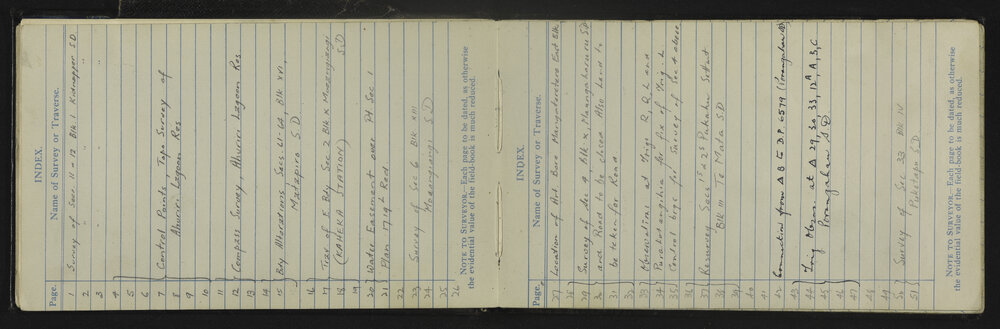 INDEX.
Page. Name of Survey or Traverse.
1 Survey of Secs 11 & 12 Blk 1 Kidnapper SD
2 " " " "
3 " " " "
4
5
6
7 Control Points, Tape Survey of
8 Ahuriri Lagoon Res
9
10
11
12 Compass Survey, Ahuriri Lagoon Res
13
14
15 Bdy Alterations Secs 61-64 Blk XVI,
Matapiro SD
16
17 Trav of E Bdy Sec 2 Blk X
18 (KAHEKA STATION) SD
19
20 Water Easement over Pt Sec 1
21 Plan 1719² Red
22
23 Survey of Sec 6 Blk XIII
24 SD
25
26
NOTE TO SURVEYOR—Each page to be dated, as otherwise
the evidential value of the field-book is much reduced.
INDEX.
Page. Name of Survey or Traverse.
27 Location of Art Bore East Blk
28
29 Survey of Sec 4 Blk X, Maungaharuru SD
30 and Road to be closed Also Land to
31 be taken for Road
32
33 Observations at Trigs R, R, L and
34 for fix of Trig L
35 Control brgs for Survey of Sec 4 above
36
37 Resurvey Secs 1S & 2S Pakahu Sett
38 Blk III Te Mata SD
39
40
41
42 Connection from △ B to D.P. 6579 (Porangahau SD)
43
44 Trig Obsns at △ 29, 30, 33, 12A, A, B, C
45 Porangahau SD
46
47
48
49
50 Survey of Sec 33 Blk IV
51 Puketapu SD
NOTE TO SURVEYOR—Each page to be dated, as otherwise
the evidential value of the field-book is much reduced.